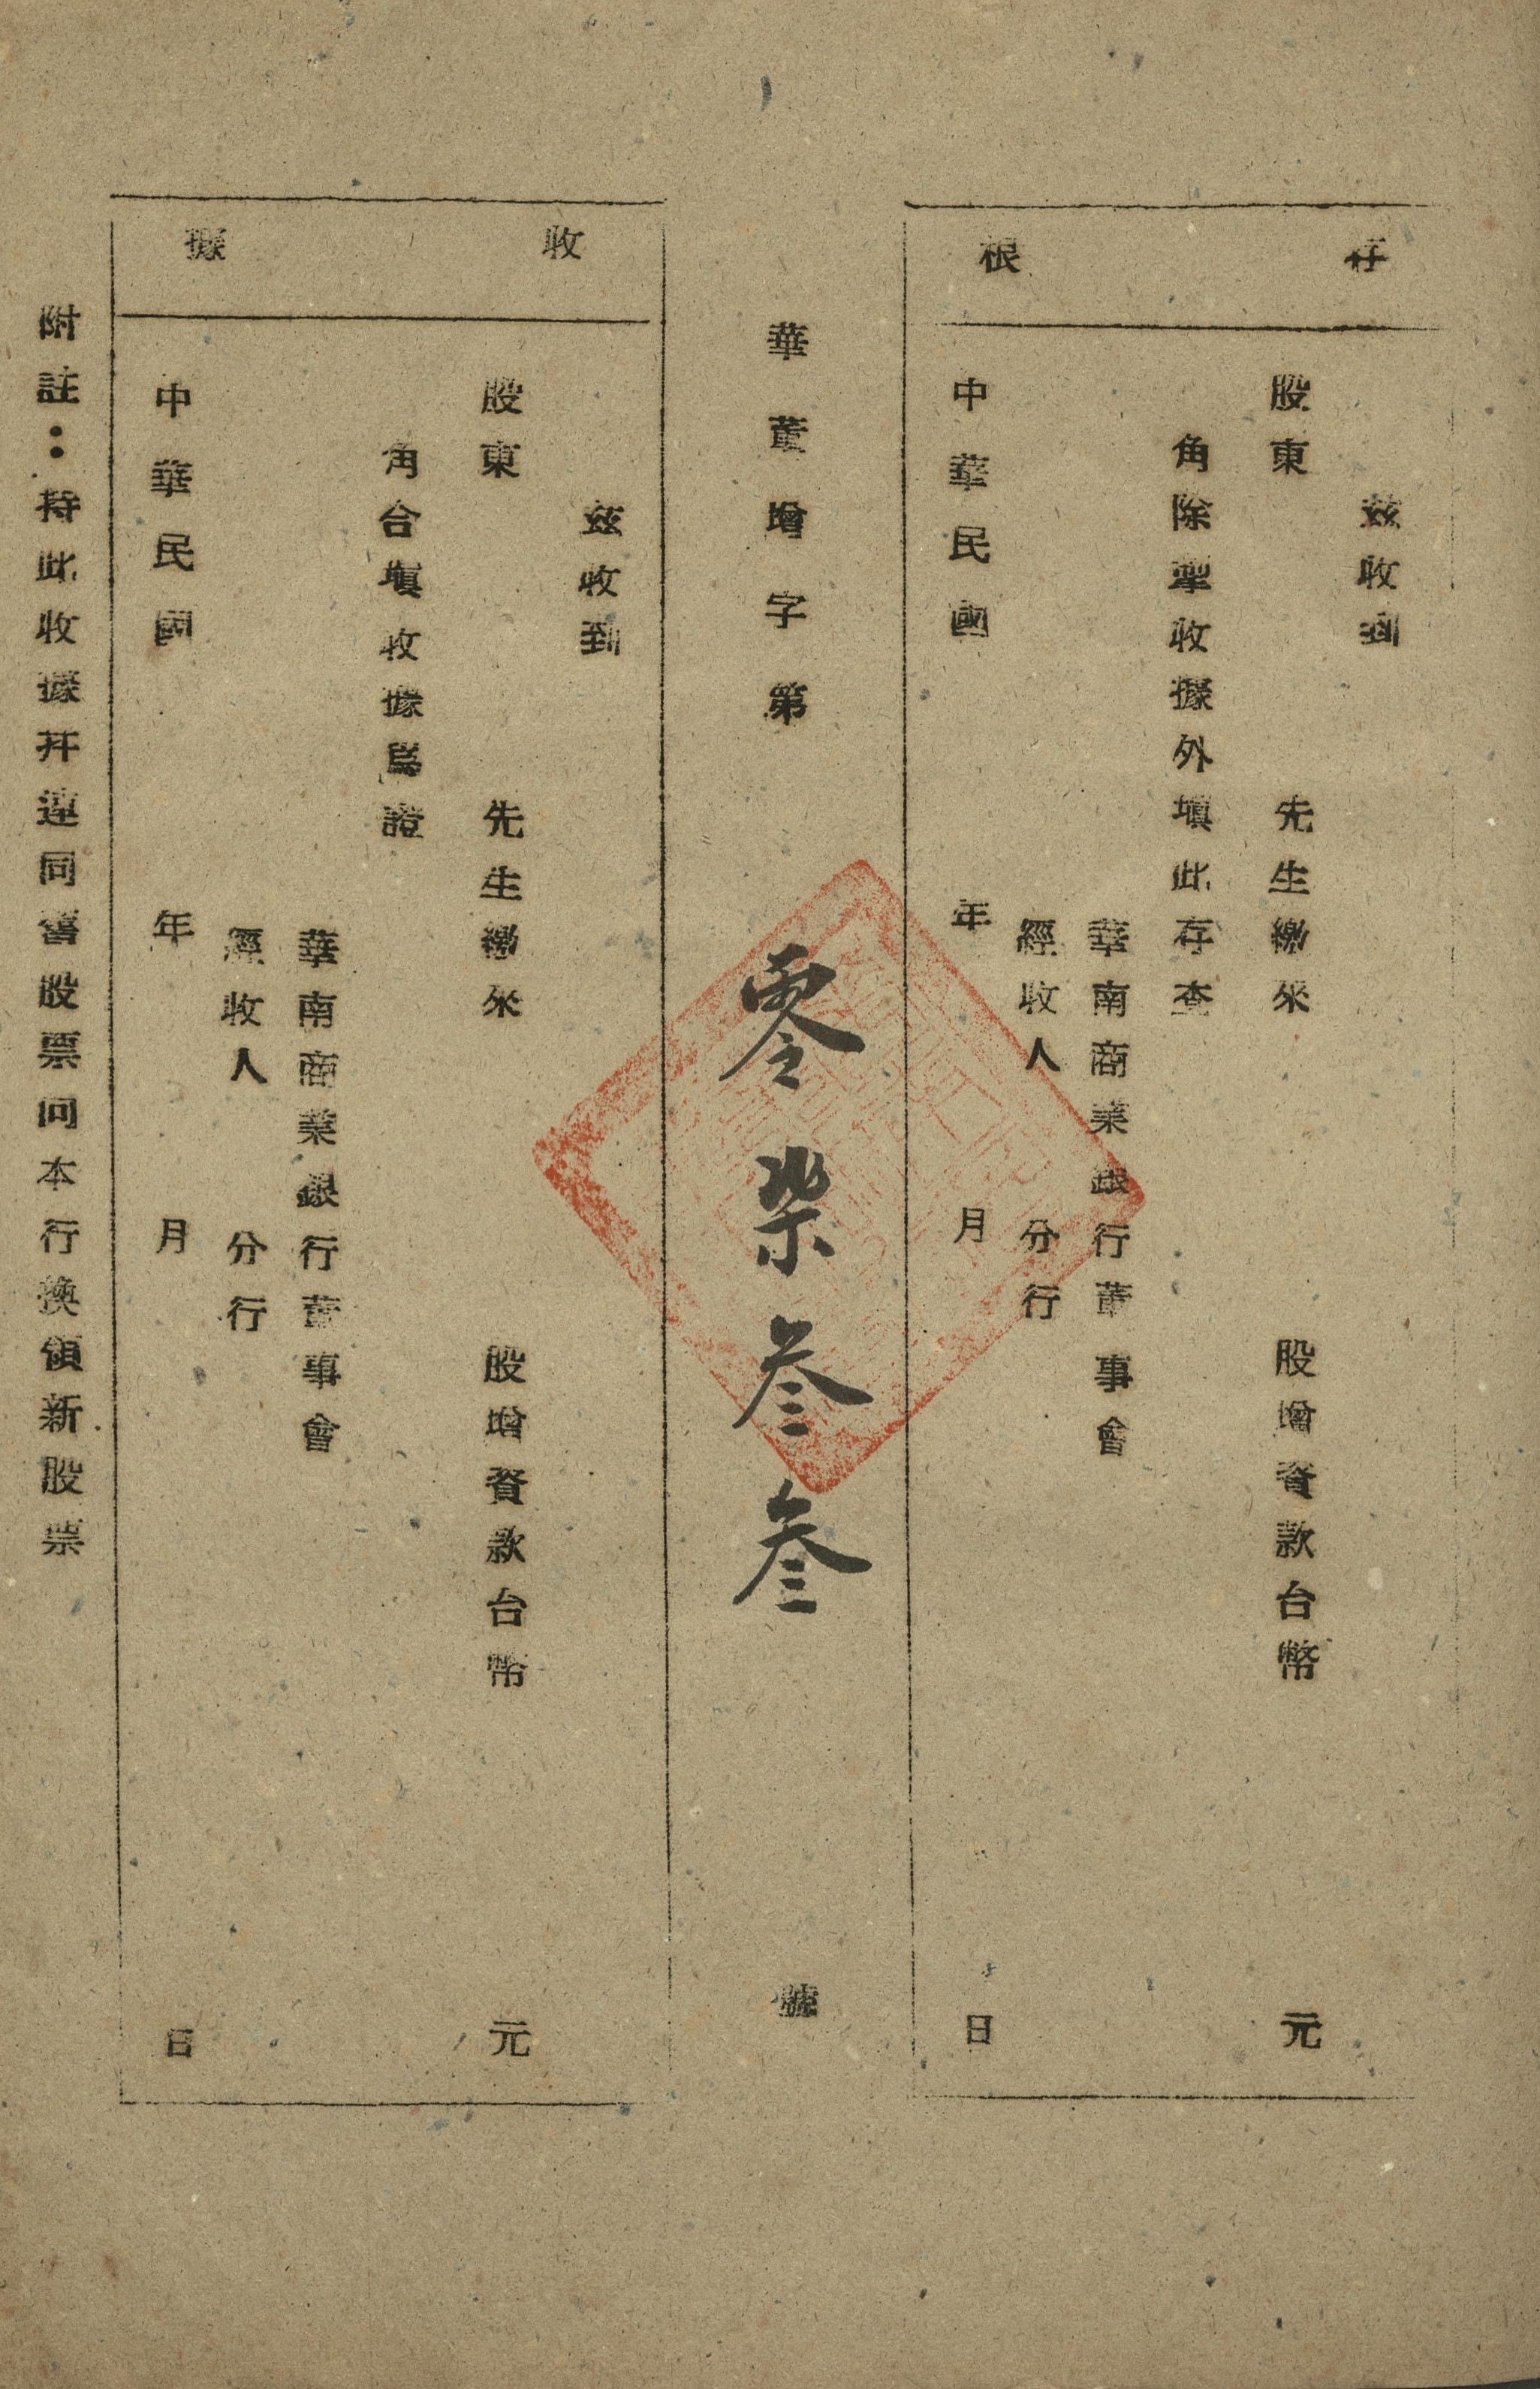 存根
茲收到
股東　先生繳來　股增資款台幣　元
角除掣收據外塡此存查
華南商業銀行董事會
經收人　分行
中華民國　年　月　日
華董增字第　零柒叁叁　號
收據
茲收到
股東　先生繳來　股增資款台幣　元
角合塡收據爲證
華南商業銀行董事會
經收人　分行
中華民國　年　月　日
附註：持此收據幷連同舊股票向本行換領新股票